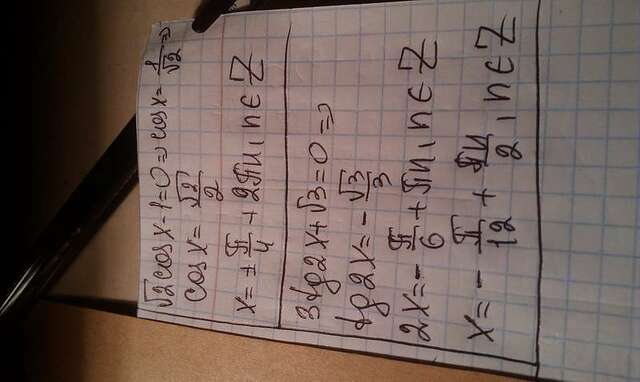 √2cosx-1=0 => cosx= 1/√2 =>
cosx= √2/2
x=± π/4 + 2πn, n∈Z
3tg2x+√3=0 =>
tg2x=- √3/3
2x=- π/6 + πn, n∈Z
x=- π/12 + πn/2, n∈Z